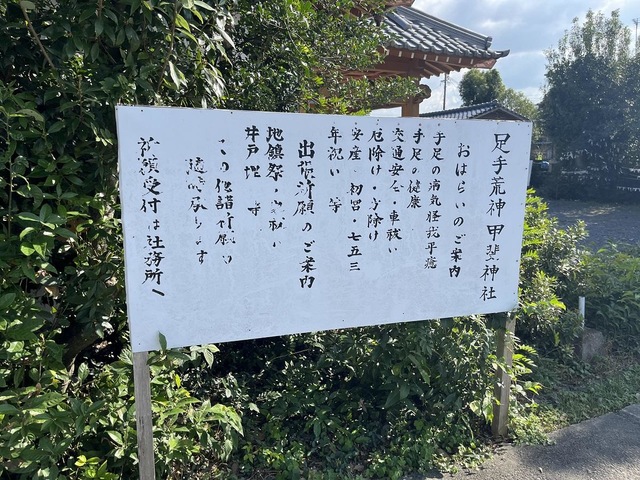 足手荒神 甲斐神社
おはらいのご案内
手足の病気怪我平癒
手足の健康
交通安全・車祓い
厄除け・方除け
安産・初宮・七五三
年祝い 等
出張祈願のご案内
地鎮祭・
井戸埋
この他諸祈願
祈願受付は社務所へ